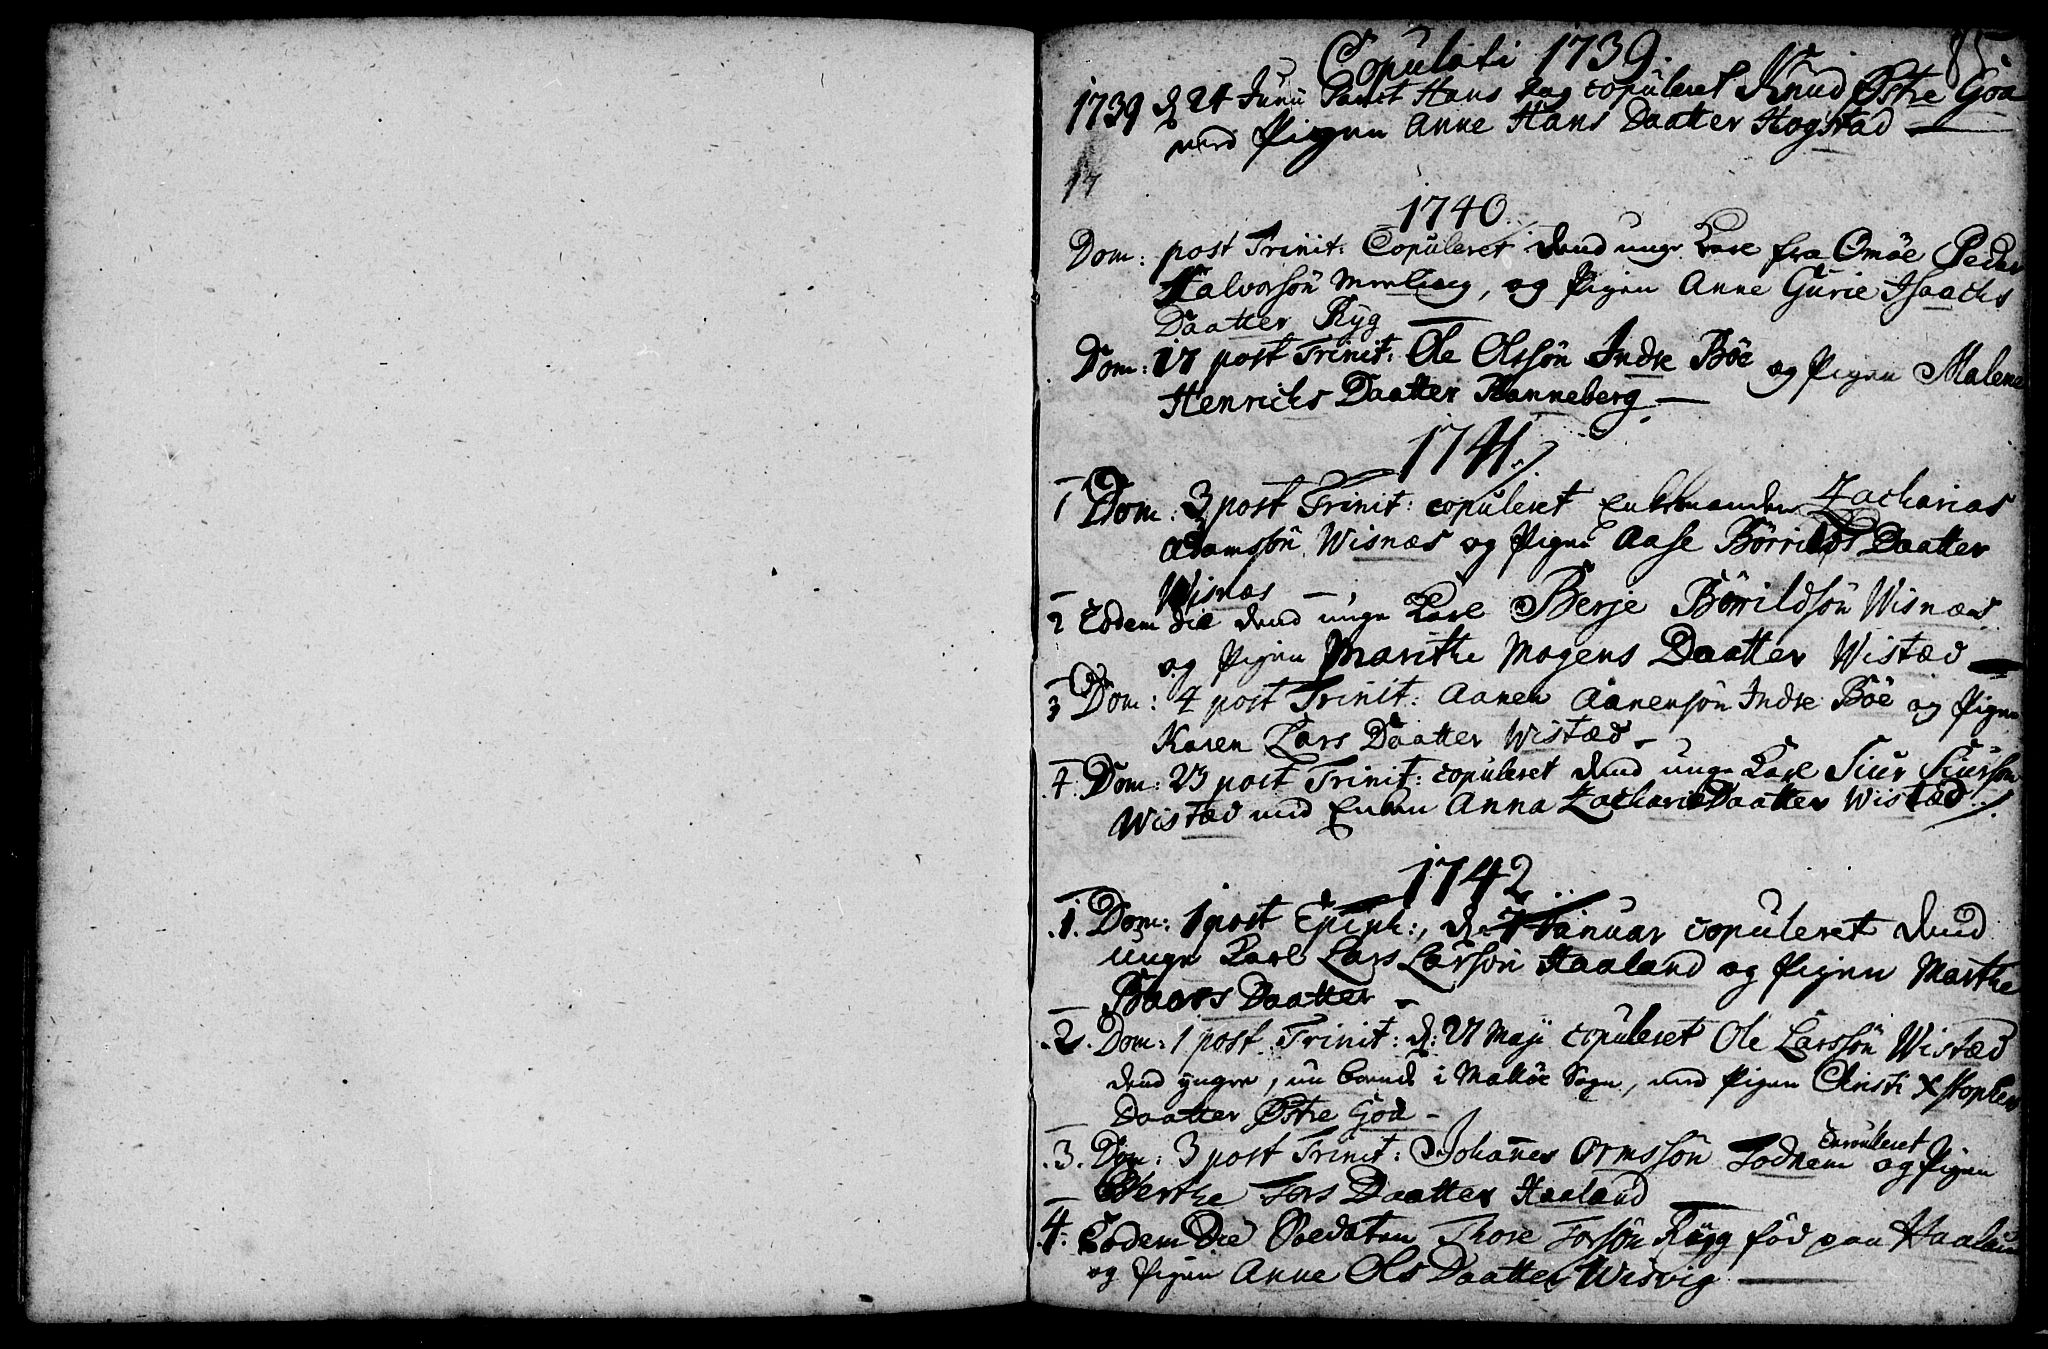 85
Copulati 1739.
1739 d 24 Junii Sanct Hans dag copuleret Knud Østre Goa
med Pigen Anne Hans Daatter Hogstad
17
1740
Dom: post Trinit: Copuleret dend unge Karl fra Omöe Peder
Halvorsön, og Pigen Anne Gurie Isaachs
Daatter Ryg
Dom: 17 post Trinit: Ole Olssön Indre Böe og Pigen Malene
Henrichs Daatter Hanneberg
1741
1 Dom: 3 post Trinit: copuleret Enkemanden Zacharias
Adamsön Wisnæs og Pigen Aase Börrilds Daatter
Wisnæs
2 Eodem die dend unge Karl Berje Börrildsön Wisnæs
og Pigen Marithe Mogens Daatter Wistæd
3 Dom: 4 post Trinit: Aanen Aanensön Indre Böe og Pigen
Karen Lars Daatter Wistæd
4. Dom: 23 post Trinit: copuleret dend unge Karl Siur Siursön
Wistæd med Enken Anna ZachariæDaatter Wistæd
1742
1. Dom: 1 post Epiph:, d. 7 Januar copuleret dend
unge Karl Lars Larsön Haaland og Pigen Marthe
Baars Daatter
2. Dom: 1 post Trinit: d: 27 Maji copuleret Ole Larssön Wistæd
dend yngre, nu boende i Sogn, med Pigen Christi Xstophers
Daatter Østre Goa
3. Dom: 3 post Trinit: Johannes Ormssön Todnem copuleret og Pigen
Berthe Tors Daatter Haaland
4. Eodem Die Soldaten Thore Torsön Rygg föd paa Haaland
og Pigen Anne Ols Daatter Wisvig